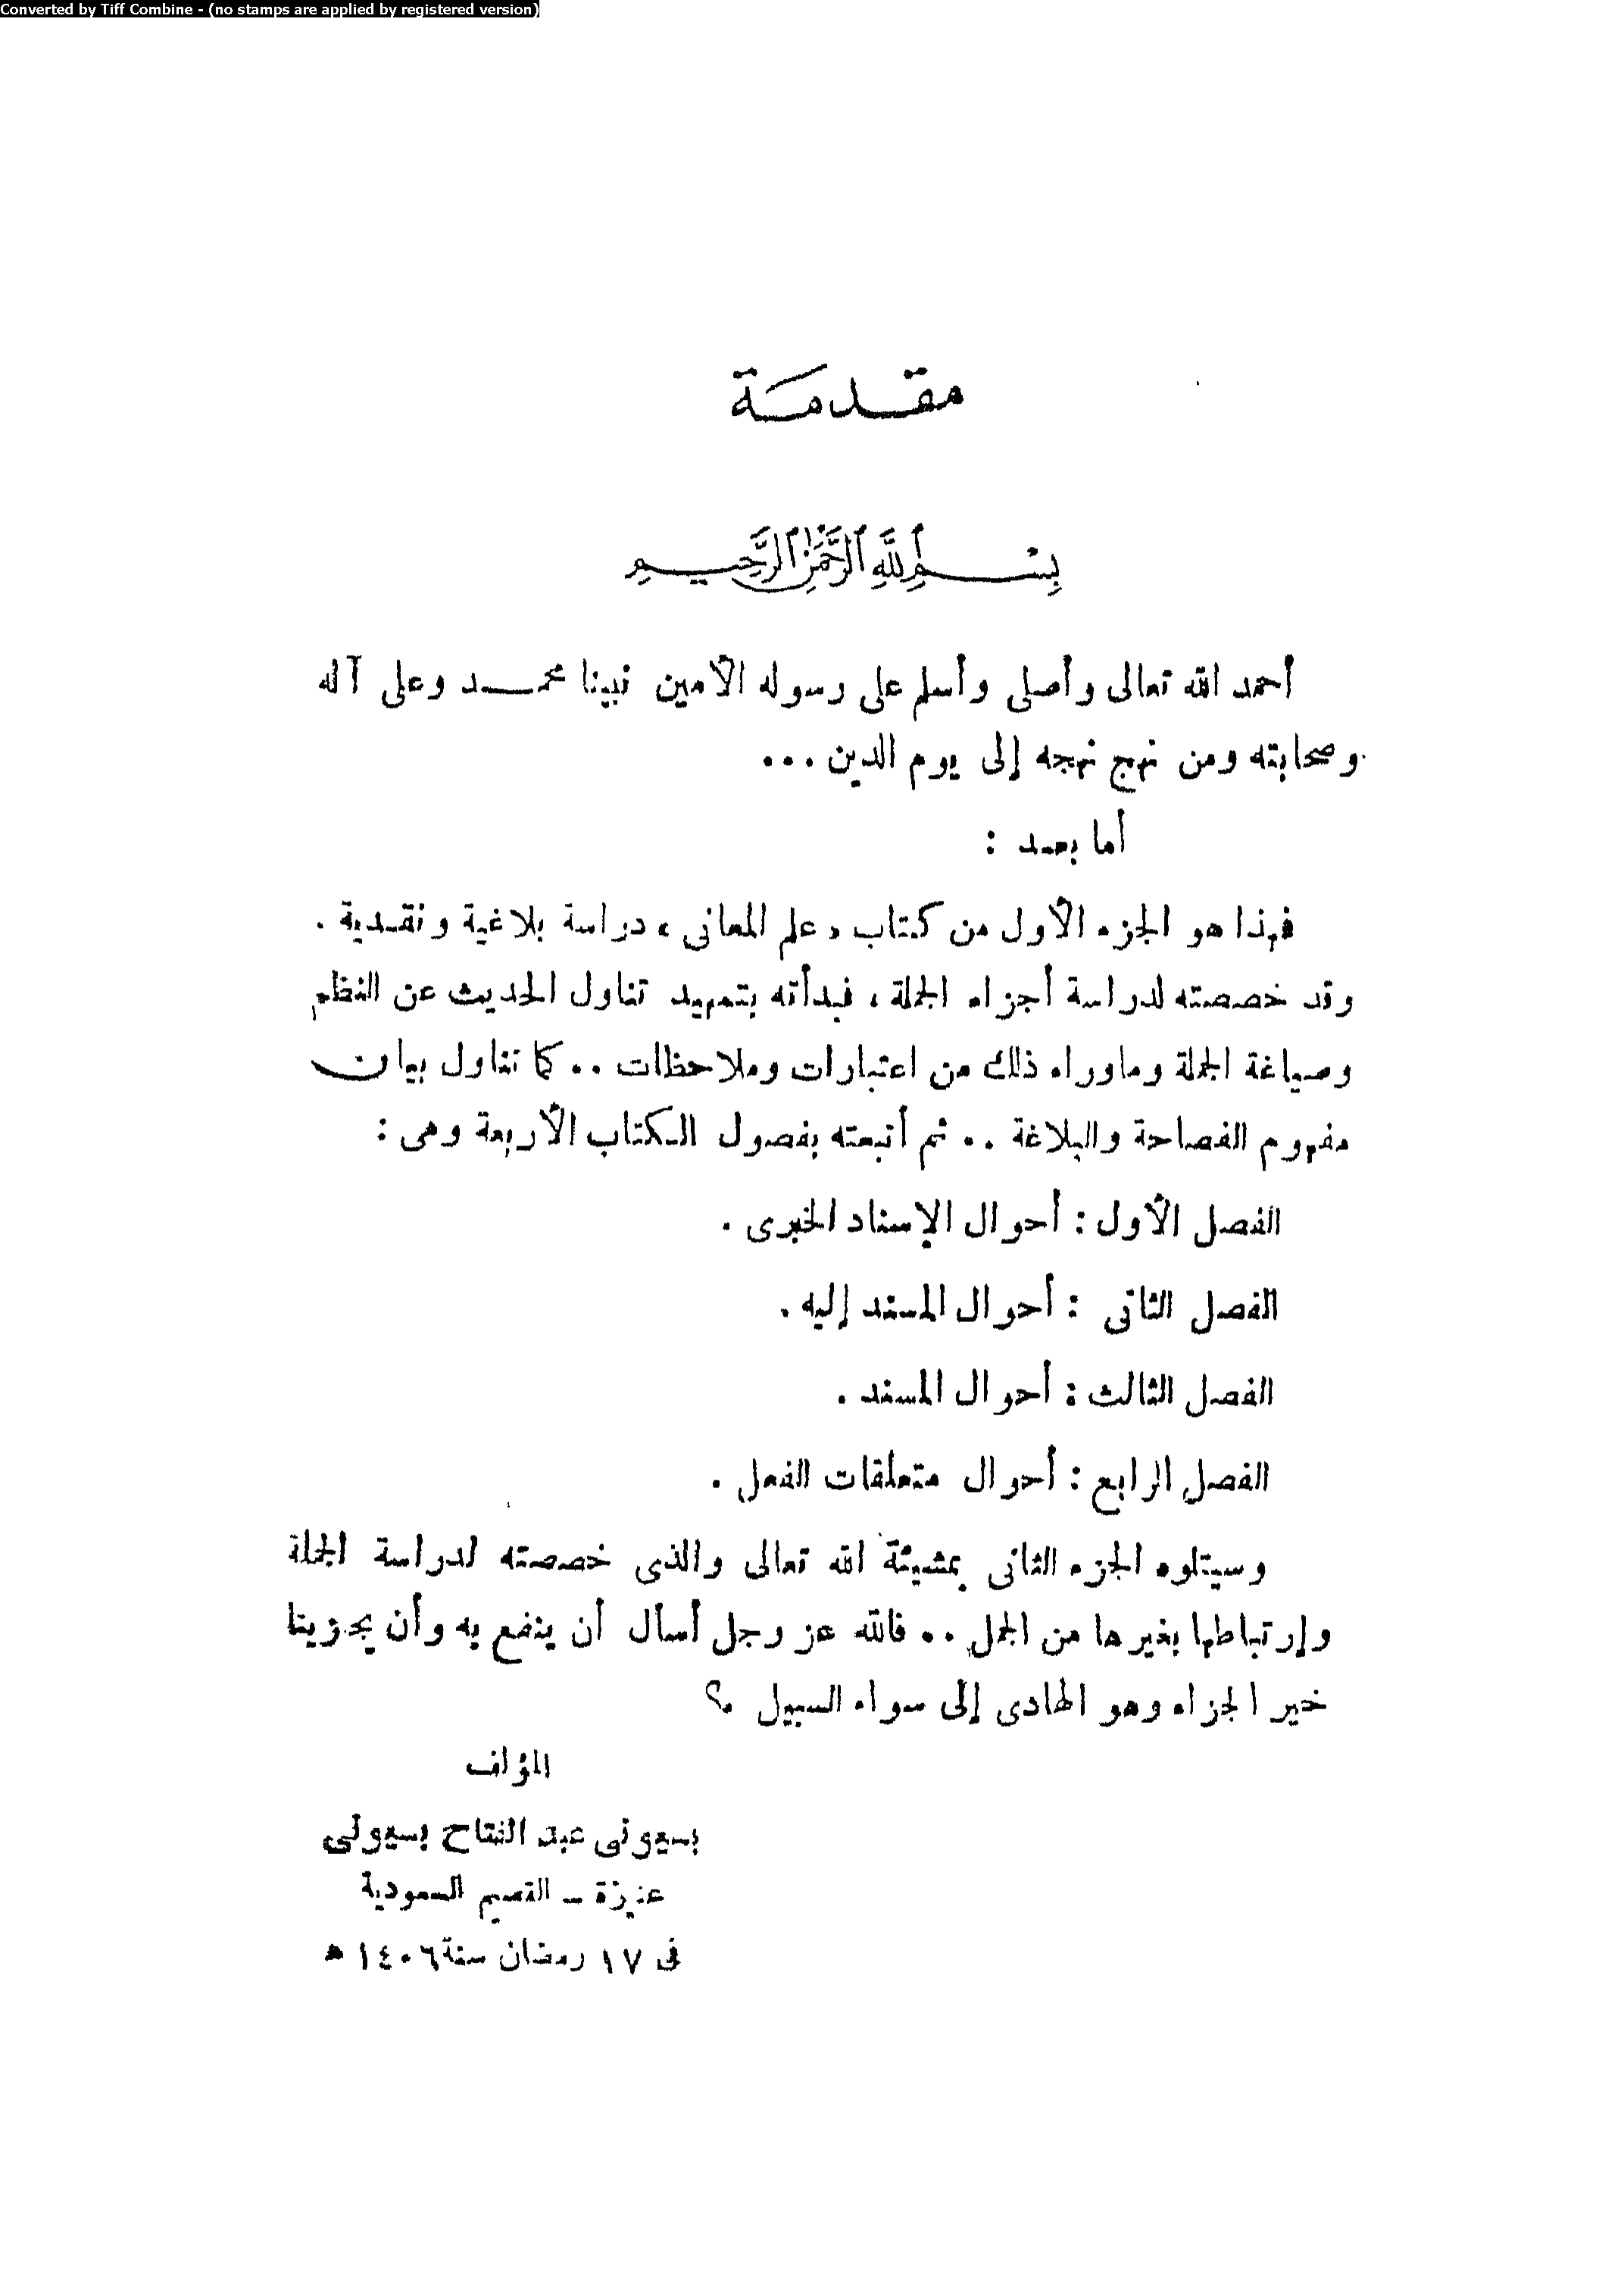 Converted by Tiff Combine - (no stamps are applied by registered version)
مقدمة
بسم الله الرحمن الرحيم
أحمد الله تعالى وأصلى وأسلم على رسوله الأمين نبينا محمد وعلى آله
وصحابته ومن نهج نهجه إلى يوم الدين ...
أما بعد :
فهذا هو الجزء الأول من كتاب « علم المعانى » دراسة بلاغية ونقدية .
وقد خصصته لدراسة أجزاء الجملة ، فبدأته بتمهيد تناول الحديث عن النظم
وصياغة الجملة وماوراء ذلك من اعتبارات وملاحظات .. كما تناول بيان
مفهوم الفصاحة والبلاغة .. ثم أتبعته بفصول الكتاب الأربعة وهى :
الفصل الأول : أحوال الإسناد الخبرى .
الفصل الثانى : أحوال المسند إليه .
الفصل الثالث : أحوال المسند .
الفصل الرابع : أحوال متعلقات الفعل .
وسيتلوه الجزء الثانى بمشيئة الله تعالى والذى خصصته لدراسة الجملة
وإرتباطها بغيرها من الجمل .. فالله عز وجل أسأل أن ينفع به وأن يجزينا
خير الجزاء وهو الهادى إلى سواء السبيل ؟
المؤلف
بسيونى عبد الفتاح بسيونى
عنيزة - القصيم السعودية
فى ١٧ رمضان سنة ١٤٠٦ ه